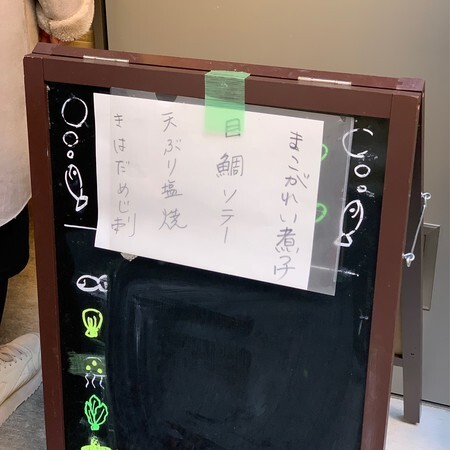 まこがれい煮子
目鯛ソテー
天ぶり塩焼
きはだめじ刺